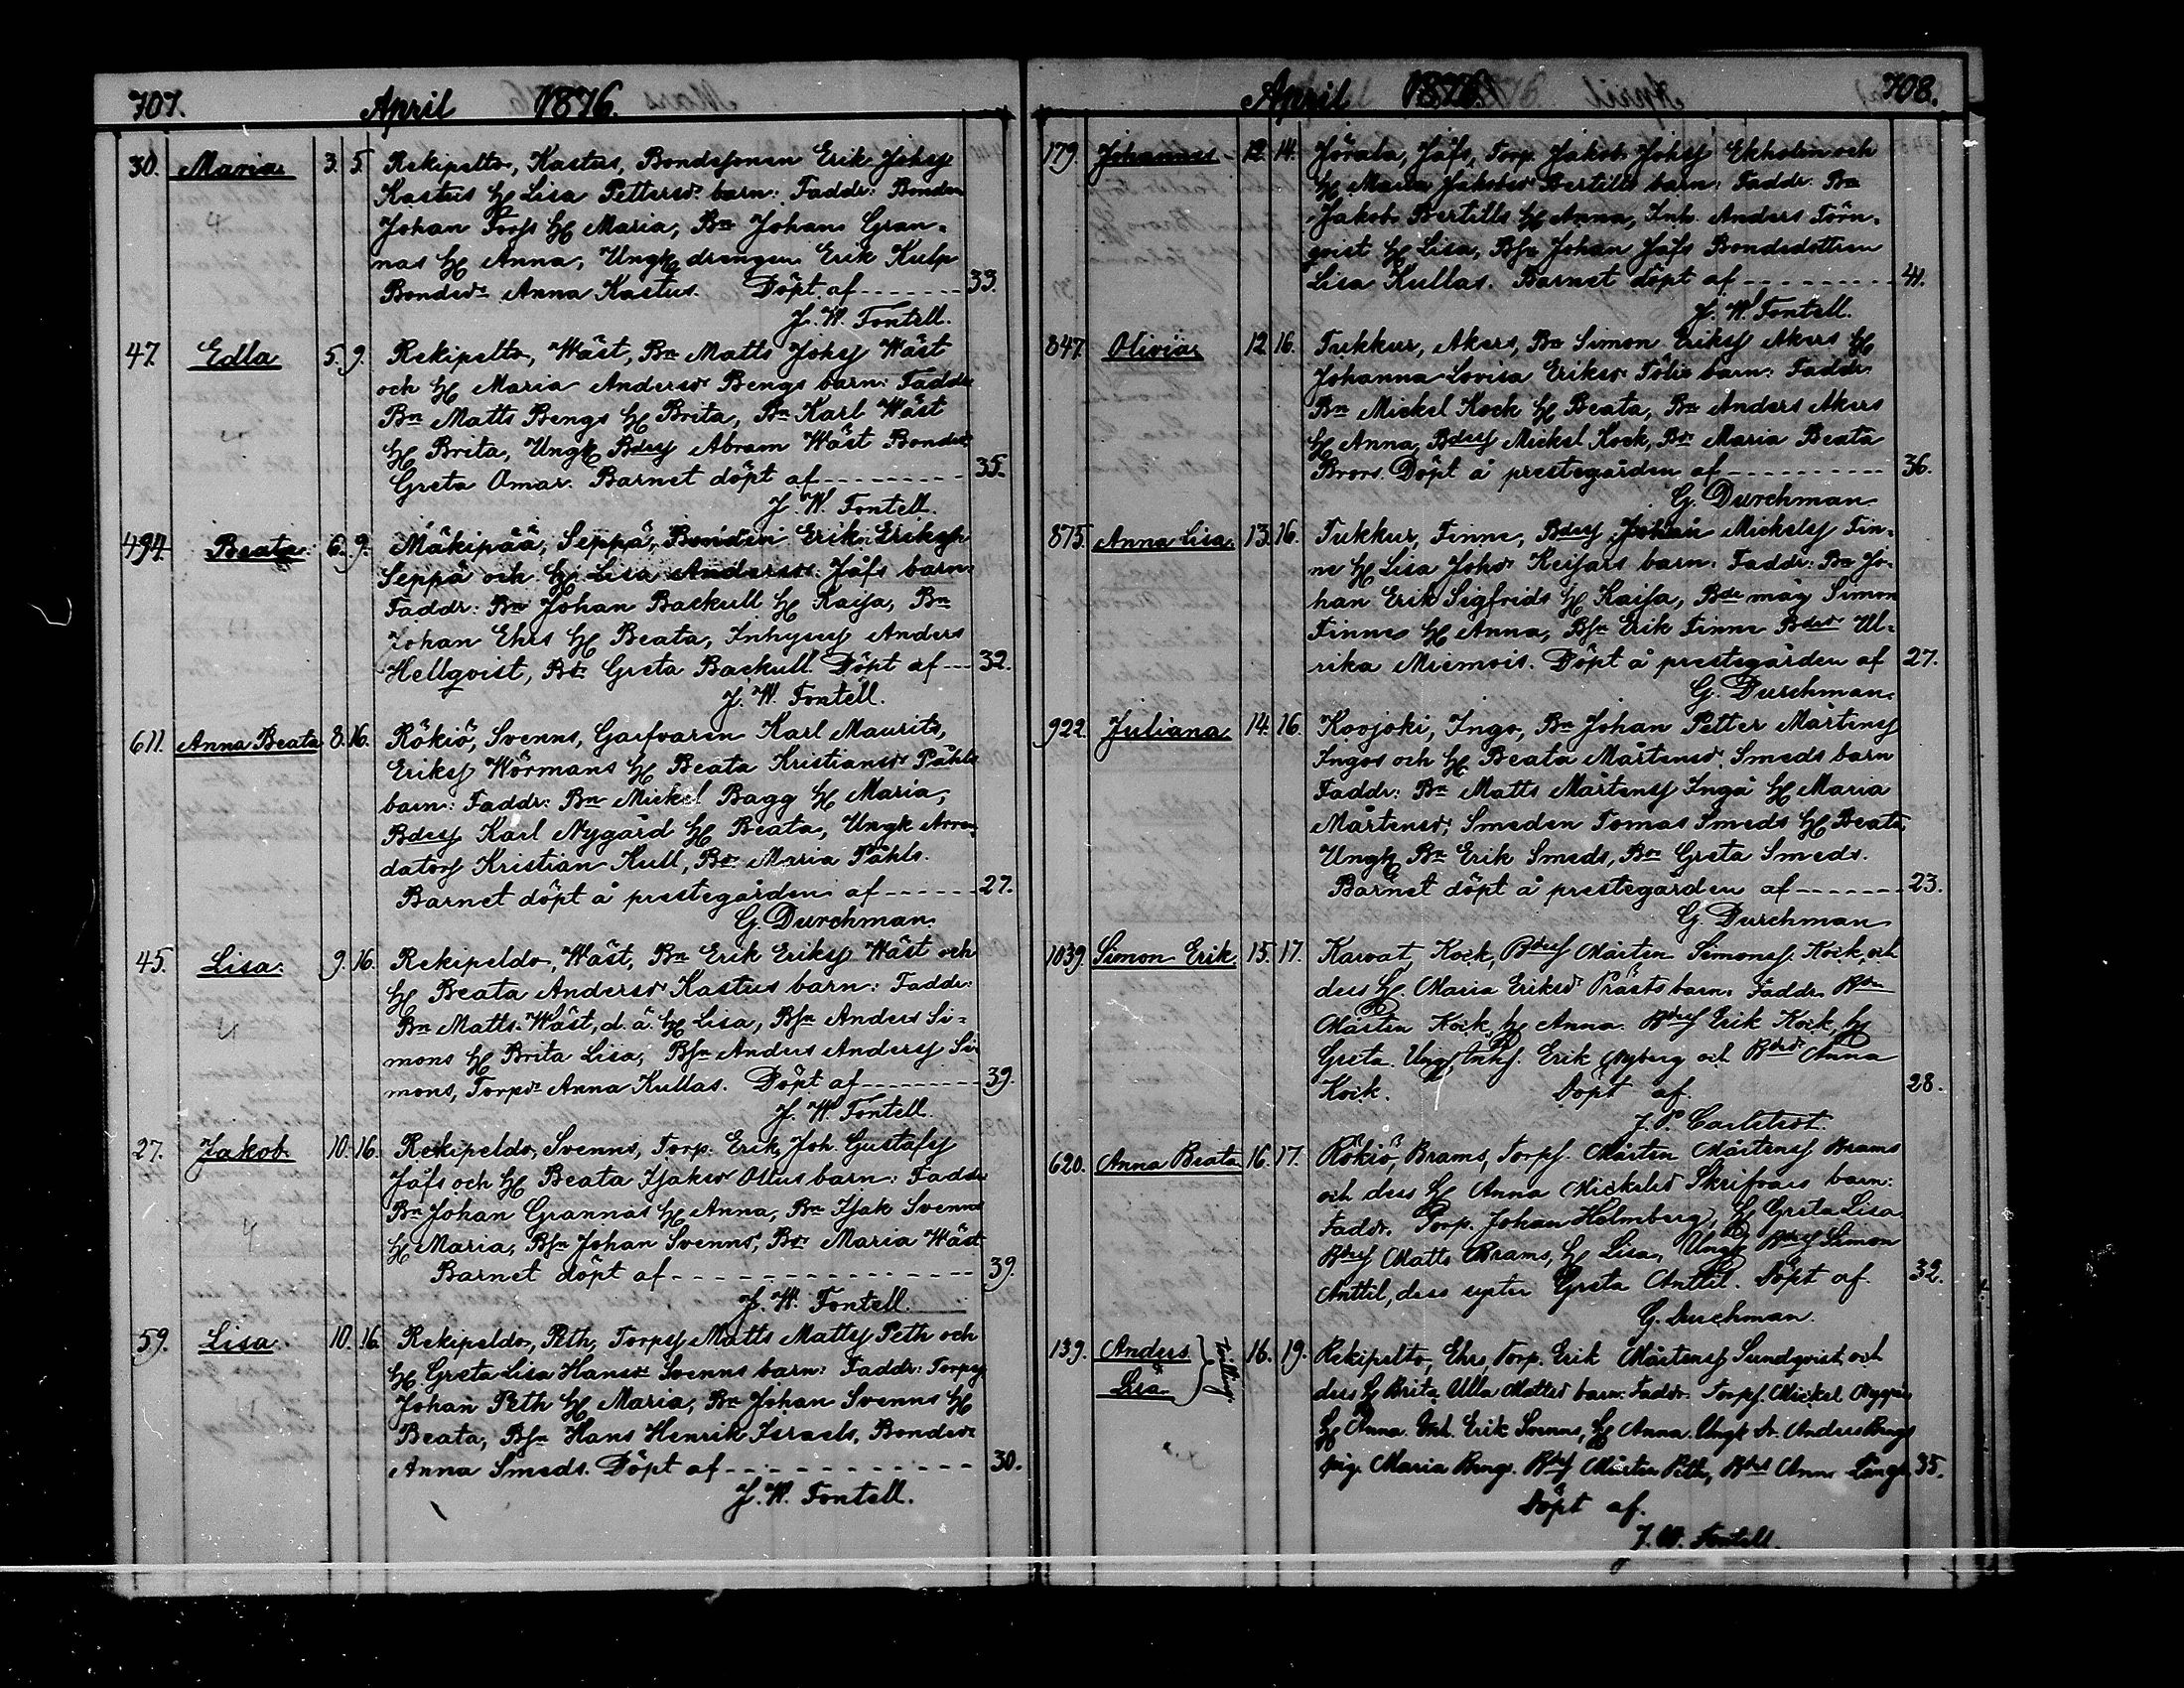 707. April 1876.
30. Maria 3. 5. Rekipelto, Kastus, Bondesonen Erik Johsf
Kastus H Lisa Pettersdr barn: Faddr: Bonden
Johan Forss H Maria, Bn Johan Gran-
nas H Anna, Ungk drengen Erik Kulp
Bondedr Anna Kastus. Döpt af - - - - - - 33.
J. W. Fontell.
47. Edla 5. 9. Rekipelto, Wäst, Bn Matts Johsf Wäst
och H Maria Andersdr Bengs barn: Faddr
Bn Matts Bengs H Brita, Bn Karl Wäst
H Brita, Ungk Bdesf Abram Wäst Bondedr
Greta Omar. Barnet döpt af - - - - - - - - 35.
J. W. Fontell.
494 Beata 6. 9. Mäkipää, Seppä, Bonden Erik Eriksf
Seppä och H Lisa Andersdr Jåfs barn:
Faddr: Bn Johan Backull H Kaisa, Bn
Johan Ehrs H Beata, Inhysesf Anders
Hellqvist, Bdr Greta Backull. Döpt af - - - 32.
J. W. Fontell.
611. Anna Beata 8. 16. Rökiö, Svenns, Garfvaren Karl Maurits,
Eriksf Wörmans H Beata Kristiansdr Påhls
barn: Faddr: Bn Mickel Bagg H Maria,
Bdesf Karl Nygård H Beata, Ungk Arren
datorf Kristian Kull, Bdr Maria Påhls.
Barnet döpt å prestegården af - - - - - - 27.
G. Durchman.
45. Lisa 9. 16. Rekipeldo, Wäst, Bn Erik Eriksf Wäst och
H Beata Andersdr Kastus barn: Faddr:
Bn Matts Wäst, d. ä. H Lisa, Bsn Anders Si-
mons H Brita Lisa, Bsn Anders Andersf Si-
mons, Torpdr Anna Kullas. Döpt af - - - - - - - - 39.
J. W. Fontell.
27. Jakob 10. 16. Rekipeldo, Svenns, Torp. Erik Joh. Gustafsf
Jåfs och H Beata Isaksdr Ollus barn: Faddr
Bn Johan Grannas H Anna, Bn Isak Svenns
H Maria, Bsn Johan Svenns, Bdr Maria Wäst
Barnet döpt af - - - - - - - - - - - - - - - 39.
J. W. Fontell.
59. Lisa 10. 16. Rekipeldo, Peth, Torpsf Matts Mattsf Peth och
H Greta Lisa Hansdr Svenns barn: Faddr: Torpsf
Johan Peth H Maria, Bn Johan Svenns H
Beata, Bsn Hans Henrik Israels, Bondedr
Anna Smeds. Döpt af - - - - - - - - - - - - 30.
J. W. Fontell.
April 1876. 708.
179. Johannes 12. 14. Jörala, Jåfs, Torp. Jakob Johsf Ekholm och
H Maria Jakobsdr Bertills barn: Faddr: Bn
Jakob Bertills H Anna, Inh. Anders Törn-
qvist H Lisa, Bsn Johan Jåfs Bondedottren
Lisa Kullas. Barnet döpt af - - - - - - - - - 41.
J. W. Fontell.
847. Olivia 12. 16. Tukkur, Akers, Bn Simon Eriksf Akers H
Johanna Lovisa Eriksdr Tölis barn: Faddr:
Bn Mickel Kock H Beata, Bn Anders Akers
H Anna, Bdesf Mickel Kock, Bdr Maria Beata
Brors. Döpt å prestegården af - - - - - - - - - - 36.
G. Durchman
875. Anna Lisa 13. 16. Tukkur, Finne, Bdesf Johan Mickelsf Fin-
ne H Lisa Johsdr Keisars barn: Faddr: Bn Jo-
han Erik Sigfrids H Kaisa, Bde måg Simon
Finne H Anna, Bsn Erik Finne Bdedr Ul-
rika Miemois. Döpt å prestegården af 27.
G. Durchman.
922. Juliana 14. 16. Kovjoki, Ingo, Bn Johan Petter Mårtensf
Ingos och H Beata Mårtensdr Smeds barn
Faddr: Bn Matts Mårtensf Ingå H Maria
Mårtensdr, Smeden Tomas Smeds H Beata,
Ungk Bn Erik Smeds, Bdr Greta Smeds.
Barnet döpt å prestegården af - - - - - - - 23.
G. Durchman
1039. Simon Erik 15. 17. Karvat, Kock, Bdesf Mårten Simonsf. Kock, och
dess H. Maria Eriksdr Prästs barn. Faddr. Bdn
Mårten Kock, H Anna. Bdesf Erik Kock, H
Greta. Ungk, Inhs. Erik Nyberg och Bdedr Anna
Kock. Döpt af. 28.
J. P. Carlstedt.
620. Anna Beata 16. 17. Rökiö, Brams, Torpf. Mårten Mårtensf Brams
och dess H Anna Mickelsdr Skrifvars barn:
Faddr. Torp. Johan Holmberg, H Greta Lisa.
Bdesf Matts Brams, H Lisa, Ungk Bdesf Simon
Anttil, dess syster Greta Anttil. Döpt af. 32.
G. Durchman.
139. Anders 16. 19. Rekipelto, Ehrs, Torp. Erik Mårtensf Sundqvist och
Lisa } tvilling. dess H Brita Ulla Mattsdr barn: Faddr. Torpf. Mickel Nygren
H Anna. Inh. Erik Svenns, H Anna. Ungk Dr. Anders Bengs
pig. Maria Bengs. Bdsf Mårten Peth, Bdedr Anna Lång 35.
Döpt af.
J. W. Fontell.